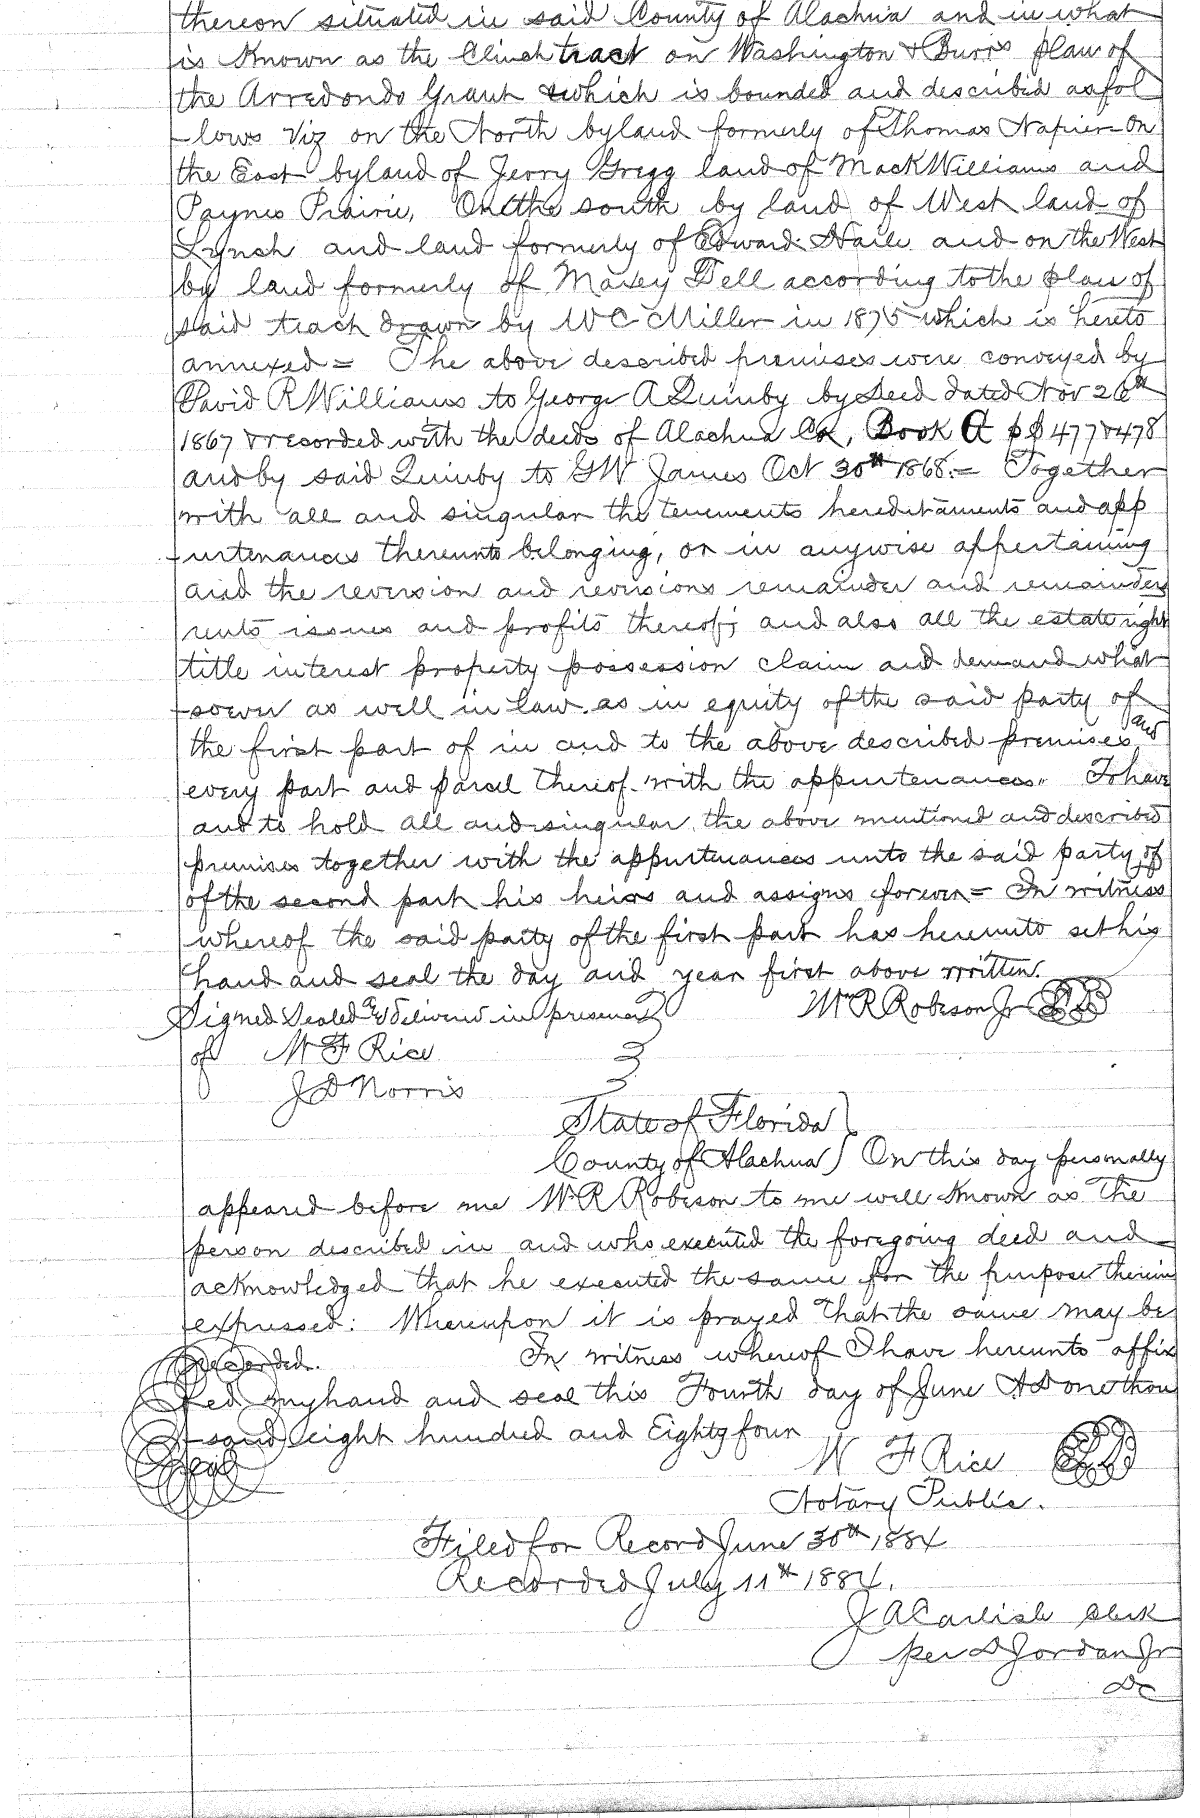 thereon situated in said County of Alachua and in what
is Known as the Clinch tract on Washington & Burr's plan of
the Arredondo Grant which is bounded and described as fol
-lows Viz on the North by land formerly of Thomas Napier - On
the East by land of Jerry Gregg land of Mack Williams and
Paynes Prairie, On the south by land of West land of
Lynch and land formerly of Edward Haile and on the West
by land formerly of Maxey Dell according to the plan of
said tract drawn by W C Miller in 1875 which is hereto
annexed = The above described premises were conveyed by
David R Williams to George A Quinby by Deed dated Nov 26th
1867 & recorded with the deeds of Alachua Co, Book A pp 477 & 478
and by said Quinby to G W James Oct 30th 1868. = Together
with all and singular the tenements hereditaments and app
-urtenances thereunto belonging, or in anywise appertaining
and the reversion and reversions remainder and remainders
rents issues and profits thereof; and also all the estate right
title interest property possession claim and demand what
-soever as well in law as in equity of the said party of
the first part of in and to the above described premises and
every part and parcel thereof with the appurtenances. To have
and to hold all and singular the above mentioned and described
premises together with the appurtenances unto the said party of
of the second part his heirs and assigns forever = In witness
whereof the said party of the first part has hereunto set his
hand and seal the day and year first above written.
Signed Sealed & delivered in presence Wm R Robeson Jr LS
of W F Rice
J D Norris
State of Florida
County of Alachua On this day personally
appeared before me Wm R Robeson to me well Known as The
person described in and who executed the foregoing deed and
acknowledged that he executed the same for the purpose therein
expressed: Whereupon it is prayed that the same may be
recorded. In witness whereof I have hereunto affix
ed my hand and seal this Fourth day of June AD one thou
-sand eight hundred and Eighty four
Seal W F Rice LS
Notary Public.
Filed for Record June 30th 1884
Recorded July 11th 1884.
J A Carlisle Clerk
per D Jordan Jr
DC